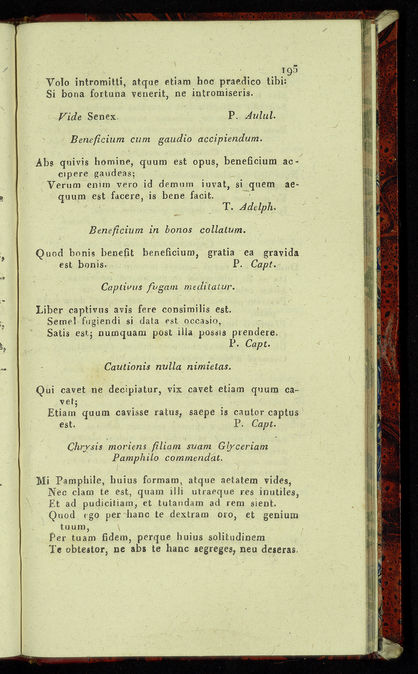 195
Volo intromitti, atque etiam hoc praedico tibi:
Si bona fortuna venerit, ne intromiseris.
Vide Senex. P. Aulul.
Beneficium cum gaudio accipiendum.
Abs quivis homine, quum est opus, beneficium ac-
cipere gaudeas;
Verum enim vero id demum iuvat, si quem ae-
quum est facere, is bene facit.
T. Adelph.
Beneficium in bonos collatum.
Quod bonis benefit beneficium, gratia ea gravida
est bonis. P. Capt.
Captivus fugam meditatur.
Liber captivus avis fere consimilis est.
Semel fugiendi si data est occasio,
Satis est; numquam post illa possis prendere.
P. Capt.
Cautionis nulla nimietas.
Qui cavet ne decipiatur, vix cavet etiam quum ca-
vet;
Etiam quum cavisse ratus, saepe is cautor captus
est. P. Capt.
Chrysis moriens filiam suam Glyceriam
Pamphilo commendat.
Mi Pamphile, huius formam, atque aetatem vides,
Nec clam te est, quam illi utraeque res inutiles,
Et ad pudicitiam, et tutandam ad rem sient.
Quod ego per hanc te dextram oro, et genium
tuum,
Per tuam fidem, perque huius solitudinem
Te obtestor, ne abs te hanc segreges, neu deseras.